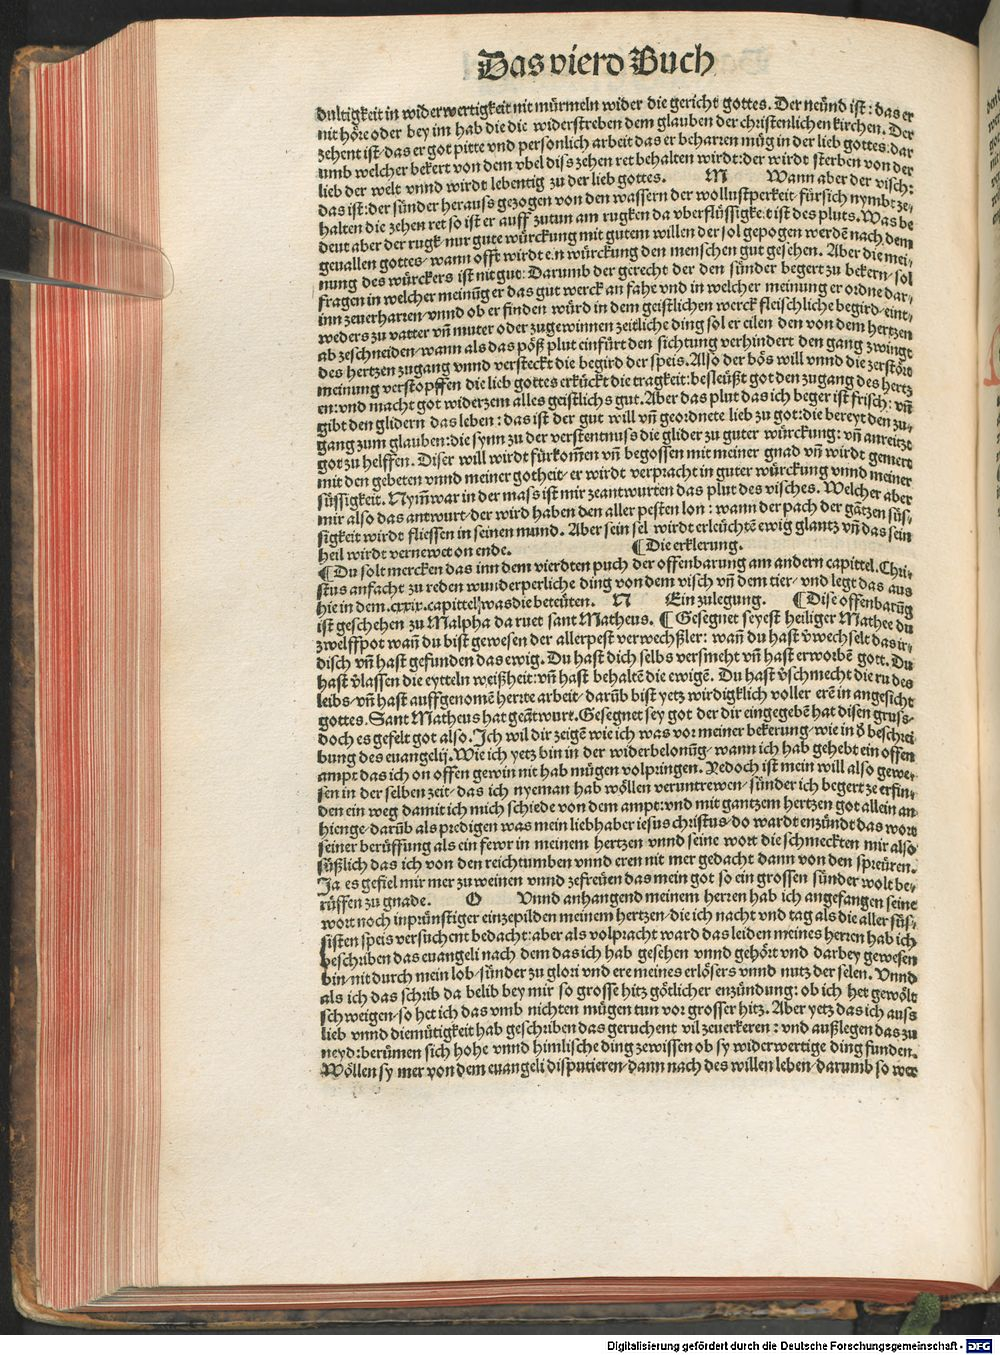 Das vierd Buch
dultigkeit in widerwertigkeit nit mürmeln wider die gericht gottes. Der neünd ist: das er
nit höre oder bey im hab die die widerstreben dem glauben der christenlichen kirchen. Der
zehent ist/ das er got pitte vnd personlich arbeit das er beharren müg in der lieb gottes: dar
umb welcher bekert von dem vbel diss zehen ret behalten wirdt: der wirdt sterben von der
lieb der welt vnnd wirdt lebentig zu der lieb gottes. M Wann aber der visch:
das ist: der sünder herauss gezogen von den wassern der wollustperkeit/ fürsich nymbt ze/
halten die zehen ret so ist er auff zutun am rugken da vberflüssigkeit ist des pluts. Was be
deut aber der rugk/ nur gute würckung mit gutem willen der sol gepogen werdē nach dem
geuallen gottes/ wann offt wirdt ein würckung den menschen gut gesehen. Aber die mei/
nung des würckers ist nit gut: Darumb der gerecht der den sünder begert zu bekern/ sol
fragen in welcher meinūg er das gut werck an fahe vnd in welcher meinung er ordne dar/
inn zeuerharren/ vnnd ob er finden würd in dem geistlichen werck fleischliche begird/ eint/
weders zu vatter vn̄ muter oder zugewinnen zeitliche ding sol er eilen den von dem hertzen
ab zeschneiden/ wann als das pöß plut einfürt den sichtung verhindert den gang zwingt
des hertzen zugang vnnd versteckt die begird der speis. Also der bös will vnnd die zerstört
meinung verstopffen die lieb gottes erkückt die tragkeit: besleüßt got den zugang des hertz
en: vnd macht got widerzem alles geistlichs gut. Aber das plut das ich beger ist frisch: vn̄
gibt den glidern das leben: das ist der gut will vn̄ geordnete lieb zu got: die bereyt den zu/
gang zum glauben: die synn zu der verstentnuss die glider zu guter würckung: vn̄ anreitzt
got zu helffen. Diser will wirdt fürkom̄en vn̄ begossen mit meiner gnad vn̄ wirdt gemert
mit den gebeten vnnd meiner gotheit/ er wirdt verpracht in guter würckung vnnd meiner
süssigkeit. Nym̄war in der mass ist mir zeantwurten das plut des visches. Welcher aber
mir also das antwurt/ der wird haben den aller pesten lon: wann der pach der gātzen süs/
sigkeit wirdt fliessen in seinen mund. Aber sein sel wirdt erleüchtē ewig glantz vn̄ das sein
heil wirdt vernewet on ende. ¶ Die erklerung.
¶ Du solt mercken das inn dem vierdten puch der offenbarung am andern capittel. Chri/
stus anfacht zu reden wunderperliche ding von dem visch vn̄ dem tier/ vnd legt das aus
hie in dem .cxxix. capittel was die beteüten. N Ein zulegung. ¶ Dise offenbarūg
ist geschehen zu Malpha da ruet sant Matheus. ¶ Gesegnet seyest heiliger Mathee du
zwelffpot wan̄ du bist gewesen der allerpest verwechßler: wan̄ du hast v̄wechselt das ir/
disch vn̄ hast gefunden das ewig. Du hast dich selbs versmeht vn̄ hast erworbē gott. Du
hast v̄lassen die eytteln weißheit: vn̄ hast behaltē die ewigē. Du hast v̄schmecht die ru des
leibs/ vn̄ hast auffgenomē herrte arbeit/ darūb bist yetz wirdigklich voller erē in angesicht
gottes. Sant Matheus hat geātwurt. Gesegnet sey got der dir eingegebē hat disen gruss/
doch es gefelt got also. Ich wil dir zeigē wie ich was vor meiner bekerung/ wie in d̄ beschrei
bung des euangelij. Wie ich yetz bin in der widerbelonūg/ wann ich hab gehebt ein offen
ampt das ich on offen gewin nit hab mügen volpringen. Yedoch ist mein will also gewe/
sen in der selben zeit/ das ich nyeman hab wöllen veruntrewen/ sünder ich begert ze erfin/
den ein weg damit ich mich schiede von dem ampt: vnd mit gantzem hertzen got allein an
hienge/ darūb als predigen was mein liebhaber iesus christus/ do wardt enzündt das wort
seiner berüffung als ein fewr in meinem hertzen vnnd seine wort die schmeckten mir also
süßlich das ich von den reichtumben vnnd eren nit mer gedacht dann von den spreüren.
Ja es gefiel mir mer zu weinen vnnd zefreüen das mein got so ein grossen sünder wolt be/
rüffen zu gnade. O Vnnd anhangend meinem herren hab ich angefangen seine
wort noch inprünstiger einzepilden meinem hertzen/ die ich nacht vnd tag als die aller süs/
sisten speis versuchent bedacht: aber als volpracht ward das leiden meines herren hab ich
beschriben das euangeli nach dem das ich hab gesehen vnnd gehört vnd darbey gewesen
bin/ nit durch mein lob/ sünder zu glori vnd ere meines erlösers vnnd nutz der selen. Vnnd
als ich das schrib da belib bey mir so grosse hitz götlicher enzündung: ob ich het gewölt
schweigen/ so het ich das vmb nichten mügen tun vor grosser hitz. Aber yetz das ich auss
lieb vnnd diemütigkeit hab geschriben das geruchent vil zeuerkeren: vnd außlegen das zu
neyd: berümen sich hohe vnnd himlische ding zewissen ob sy widerwertige ding funden.
Wöllen sy mer von dem euangeli disputieren/ dann nach des willen leben/ darumb so wer
Digitalisierung gefördert durch die Deutsche Forschungsgemeinschaft - DFG